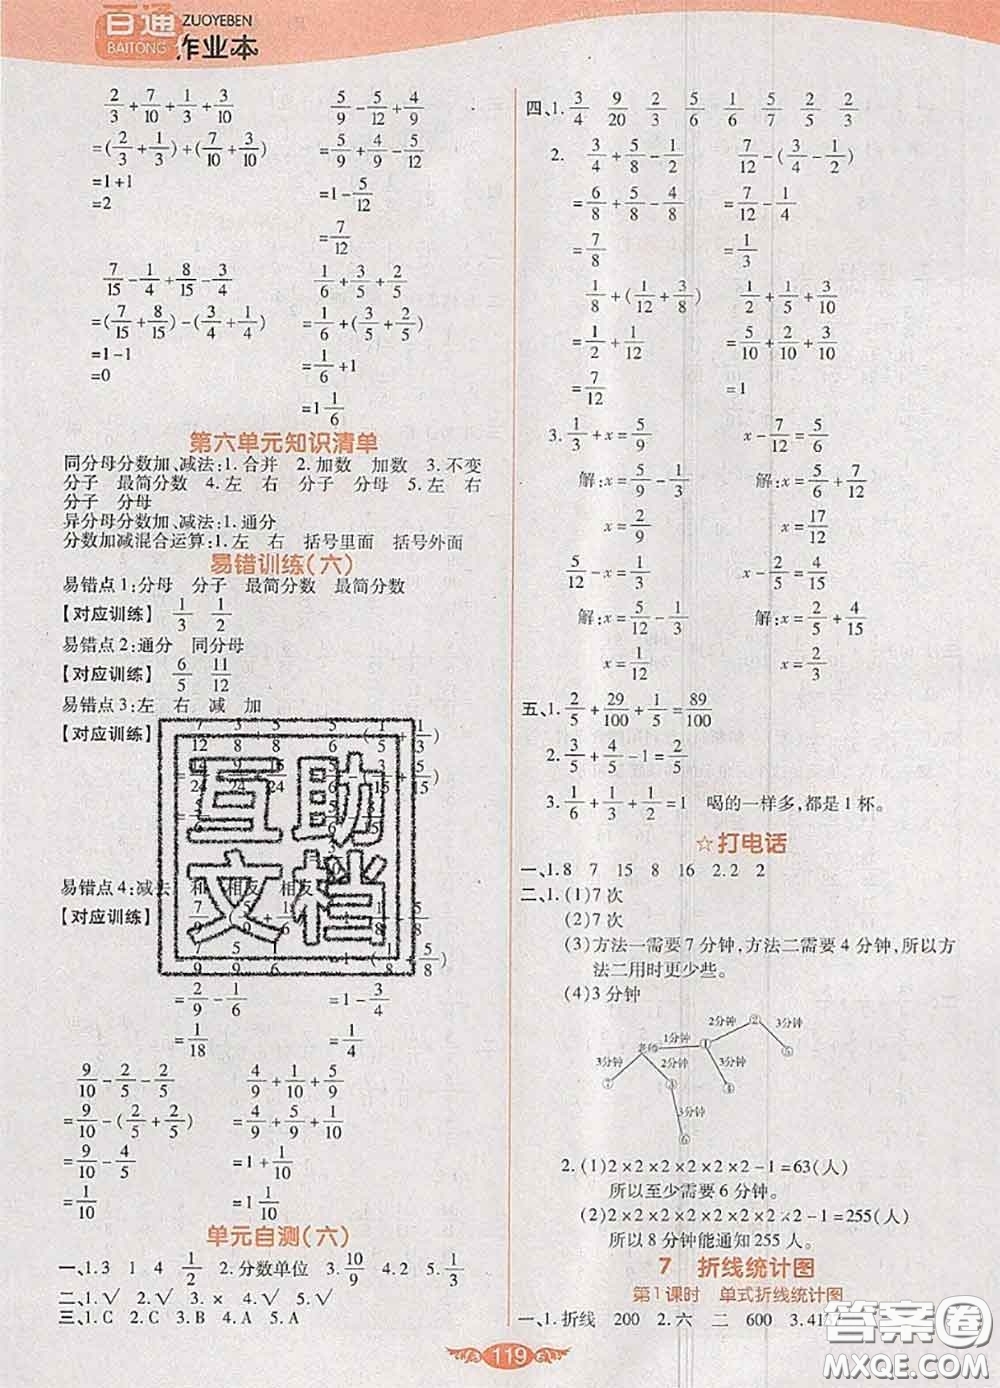 百通 BAITONG ZUOYEBEN 作业本
2/3+7/10+1/3+3/10
=(2/3+1/3)+(7/10+3/10)
=1+1
=2
5/9-5/12+4/9
=5/9+4/9-5/12
=1-5/12
=7/12
7/15-1/4+8/15-3/4
=(7/15+8/15)-(3/4+1/4)
=1-1
=0
1/6+3/5+2/5
=1/6+(3/5+2/5)
=1/6+1
=1 1/6
第六单元知识清单
同分母分数加、减法:1.合并 2.加数 加数 3.不变
分子 最简分数 4.左 右 分子 分母 5.左 右
分子 分母
异分母分数加、减法:1.通分
分数加减混合运算:1.左 右 括号里面 括号外面
易错训练(六)
易错点1:分母 分子 最简分数 最简分数
【对应训练】 1/3 1/2
易错点2:通分 同分母
【对应训练】 6/5 11/12
易错点3:左 右 减 加
【对应训练】
易错点4:减去 和 相反 相反
【对应训练】
=2/9-1/6
=1/18
=1-3/4
=1/4
9/10-2/5-2/5
=9/10-(2/5+2/5)
=9/10-4/5
=1/10
4/9+1/10+5/9
=4/9+5/9+1/10
=1+1/10
=1 1/10
单元自测(六)
一、1.3 1 4 1/2 2.分数单位 3.10/9 4.2 5.1/3
二、1.√ 2.√ 3.× 4.√ 5.√
三、1.C 2.B 3.C 4.A 5.A
四、1.3/4 9/20 2/3 5/6 1/6 5/7 2/5 2/3
2. 3/4+5/8-1/2
=6/8+5/8-4/8
=7/8
7/12-(3/4-1/2)
=7/12-1/4
=1/3
1/8+(1/12+3/8)
=1/2+1/12
=7/12
1/2+1/5+3/10
=5/10+2/10+3/10
=1
3.1/3+x=5/9
解:x=5/9-1/3
x=2/9
x-7/12=5/6
解:x=5/6+7/12
x=17/12
5/12-x=1/3
解:x=5/12-1/3
x=1/12
x-2/5=4/15
解:x=2/5+4/15
x=2/3
五、1.2/5+29/100+1/5=89/100
2.3/5+4/5-1=2/5
3.1/6+1/3+1/2=1 喝的一样多,都是1杯。
☆打电话
一、1.8 7 15 8 16 2.2 2
二、1.(1)7次
(2)7次
(3)方法一需要7分钟,方法二需要4分钟,所以方
法二用时更少些。
(4)3分钟
2分钟 ② 3分钟 ⑤
老师 1分钟 ①
3分钟 2分钟 3分钟
3分钟
⑥
2.(1)2×2×2×2×2×2-1=63(人)
所以至少需要6分钟。
(2)2×2×2×2×2×2×2×2-1=255(人)
所以8分钟能通知255人。
7 折线统计图
第1课时 单式折线统计图
一、1.折线 200 2.六 二 600 3.41
119
互助文档
答案圈
MXQE.COM